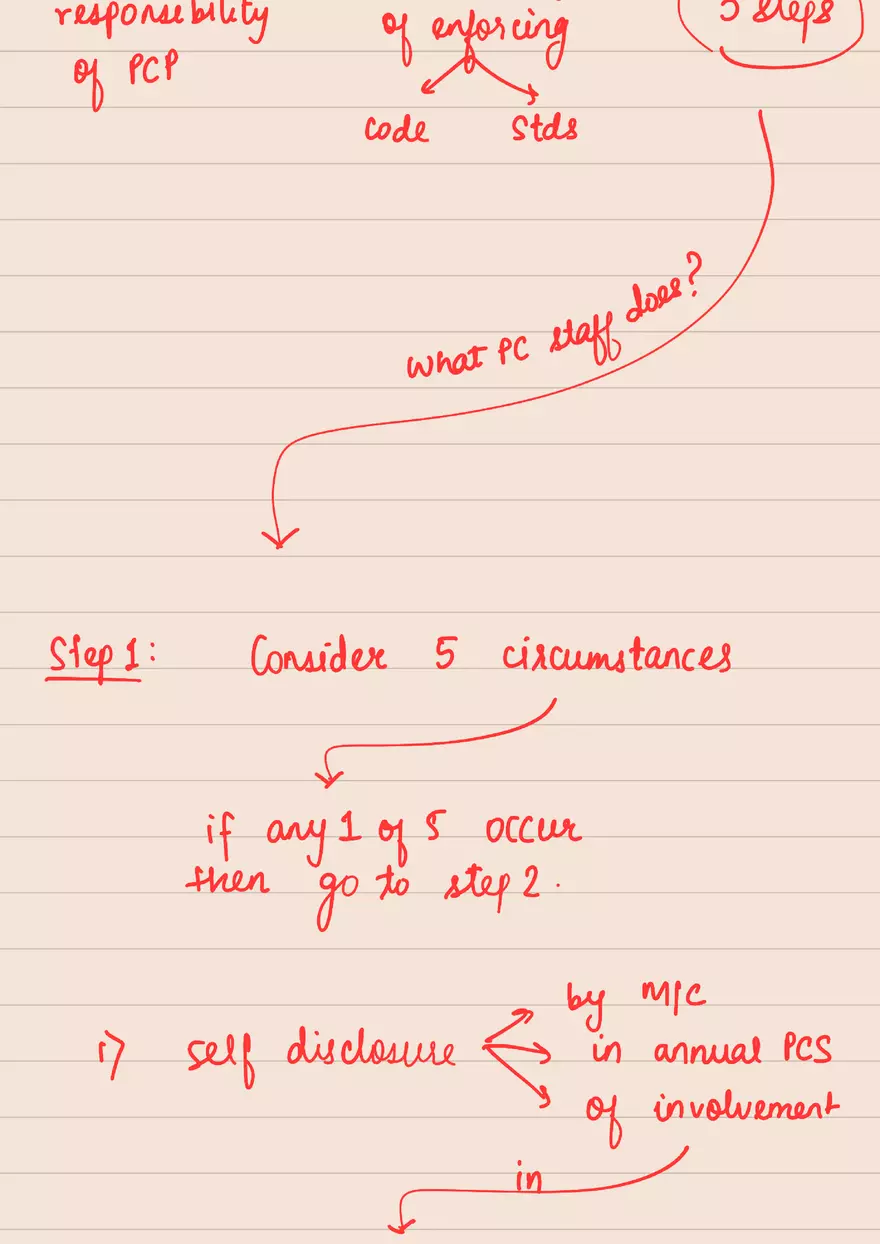 responsebility
of PCP
of enforcing
Code Stds
5 steps
What PC staff does?
Step 1: Consider 5 circumstances
if any 1 of 5 occur
then go to step 2.
1) self disclosure
by M/C
in annual PCS
of involvement
in